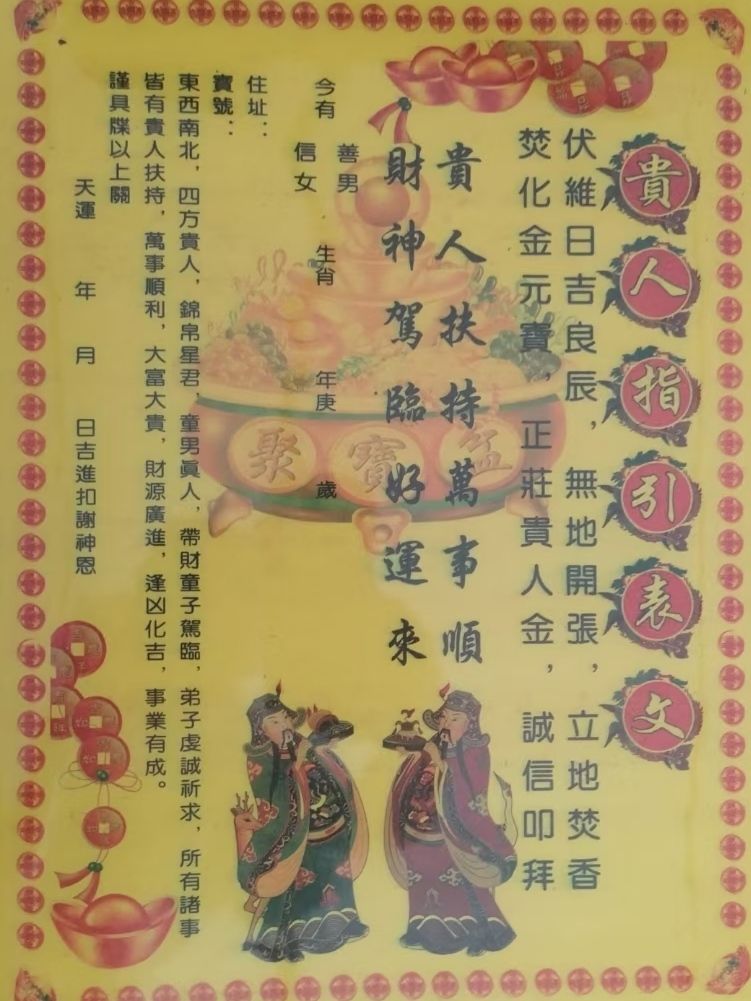 貴人指引表文
伏維日吉良辰，無地開張，立地焚香
焚化金元寶，正莊貴人金，誠信叩拜
貴人扶持萬事順
財神駕臨好運來
聚寶盆
今有
善男
信女
生肖
年庚
歲
住址：
寶號：
東西南北，四方貴人，錦帛星君，童男真人，帶財童子駕臨，弟子虔誠祈求，所有諸事
皆有貴人扶持，萬事順利，大富大貴，財源廣進，逢凶化吉，事業有成。
謹具牒以上關
天運　年　月　日吉進扣謝神恩